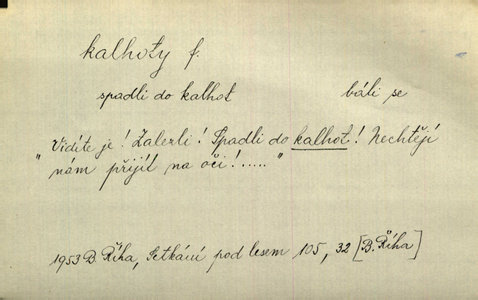 kalhoty f.
spadli do kalhot báli se
"Vidíte je! Zalezli! Spadli do kalhot! Nechtějí
nám přijít na oči!....."
1953 B. Říha, Setkání pod lesem 105, 32 [B. Říha]